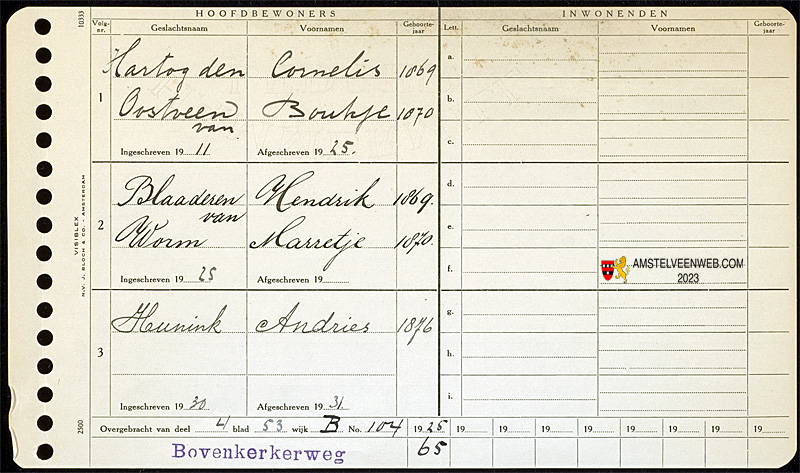 HOOFDBEWONERS INWONENDEN
Volg-nr. Geslachtsnaam Voornamen Geboorte-jaar Lett. Geslachtsnaam Voornamen Geboorte-jaar
1 Hartog den Cornelis 1869 a.
Oostveen Boukje 1870 b.
van c.
Ingeschreven 19 11 Afgeschreven 19 25.
2 Blaaderen Hendrik 1869. d.
van
Worm Marretje 1870. e.
Ingeschreven 19 25 Afgeschreven 19 f.
3 Heunink Andries 1876 g.
h.
Ingeschreven 19 30 Afgeschreven 19 31. i.
Overgebracht van deel 4 blad 53 wijk B No. 104 1925 19 19 19 19 19 19 19 19
Bovenkerkerweg 65
10333
VISIBLEX
N.V. J. BLOCH & CO. - AMSTERDAM
2500
AMSTELVEENWEB.COM
2023